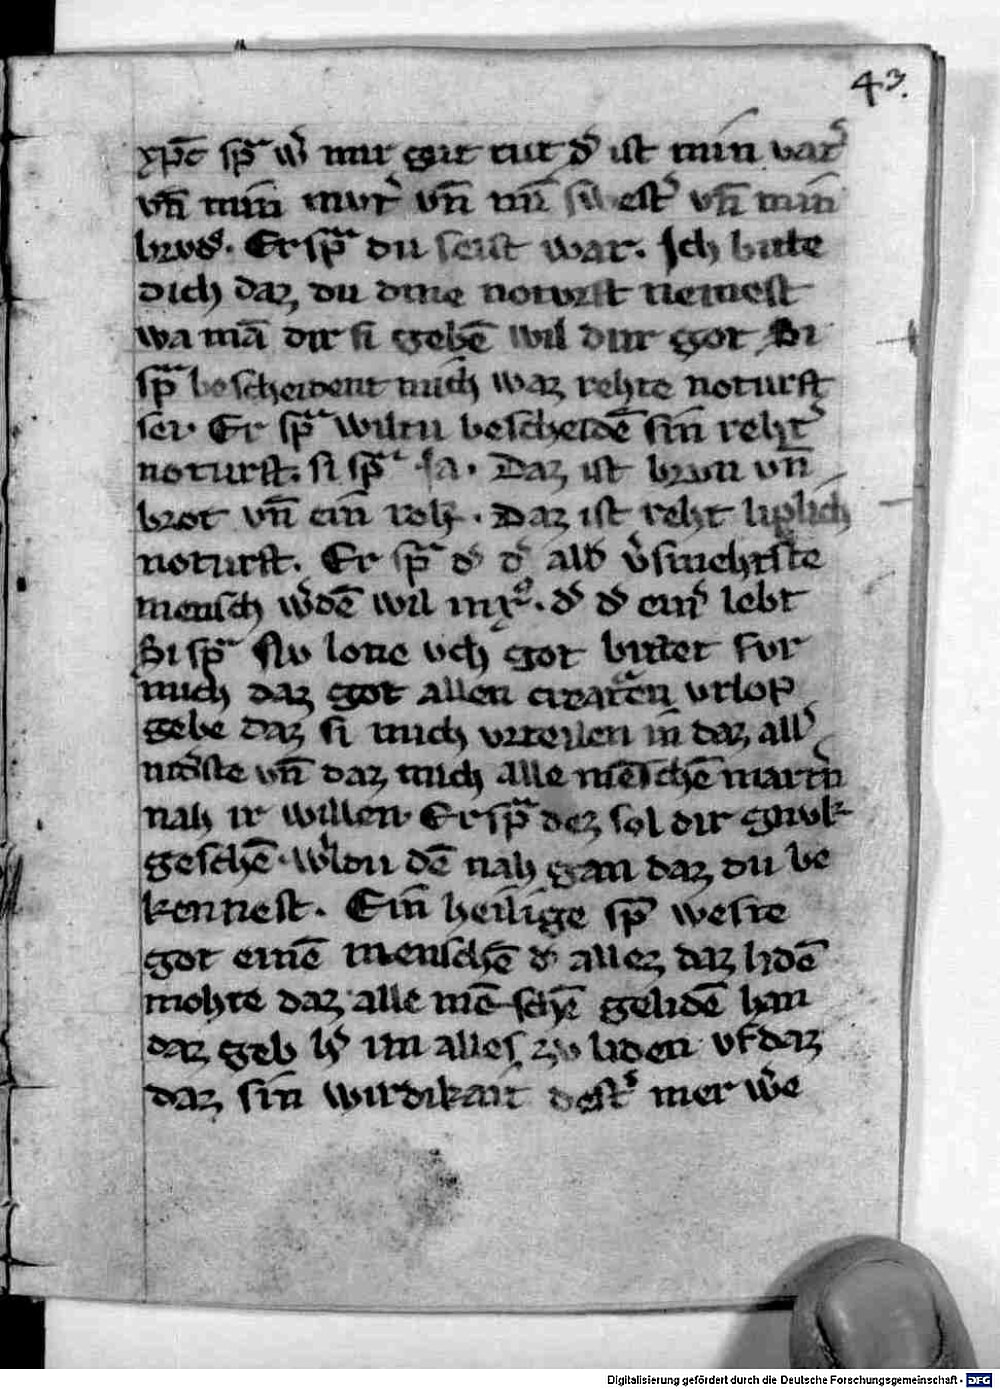 43.
xp̄c sp͛ᵃ w͛ mir guͦt tuͦt d͛ ist min vat͛
vn̄ min muͦt͛ vn̄ mī swest͛ vn̄ min
bruͦd͛. Er spᵃ du seist war. Ich bitte
dich daz du dine noturft nemest
wa mā dir si gebē wil dur got Si
spᵃ bescheident mich waz rehte noturft
sei. Er spᵃ wiltu bescheidē sin reht͛
noturft. si spᵃ Ja. Daz ist brun vn̄
brot vn̄ ein rok. Daz ist reht liplich
noturft. Er spᵃ d͛ d͛ all͛ v͛smehtste
mensch w͛dē wil in xᵒ. d͛ d͛ lebt
Si spᵃ Nv lone vch got bittet fvr
mich daz got allen creatᵃen vrlop
gebe daz si mich vrteilen in daz all͛
nid͛ste vn̄ daz mich alle mēschē mart͛n
nah ir willen. Er spᵃ dez sol dir gnvk
geschē. wildu dē nah gan daz du be
kennest. Ein heilige sp͛ weste
got einē menschē d͛ allez daz lidē
mohte daz alle mēschē gelidē han
daz geb h͛ im alles zv liden vf daz
daz sin wirdikait dest͛ mer w͛e
Digitalisierung gefördert durch die Deutsche Forschungsgemeinschaft - DFG